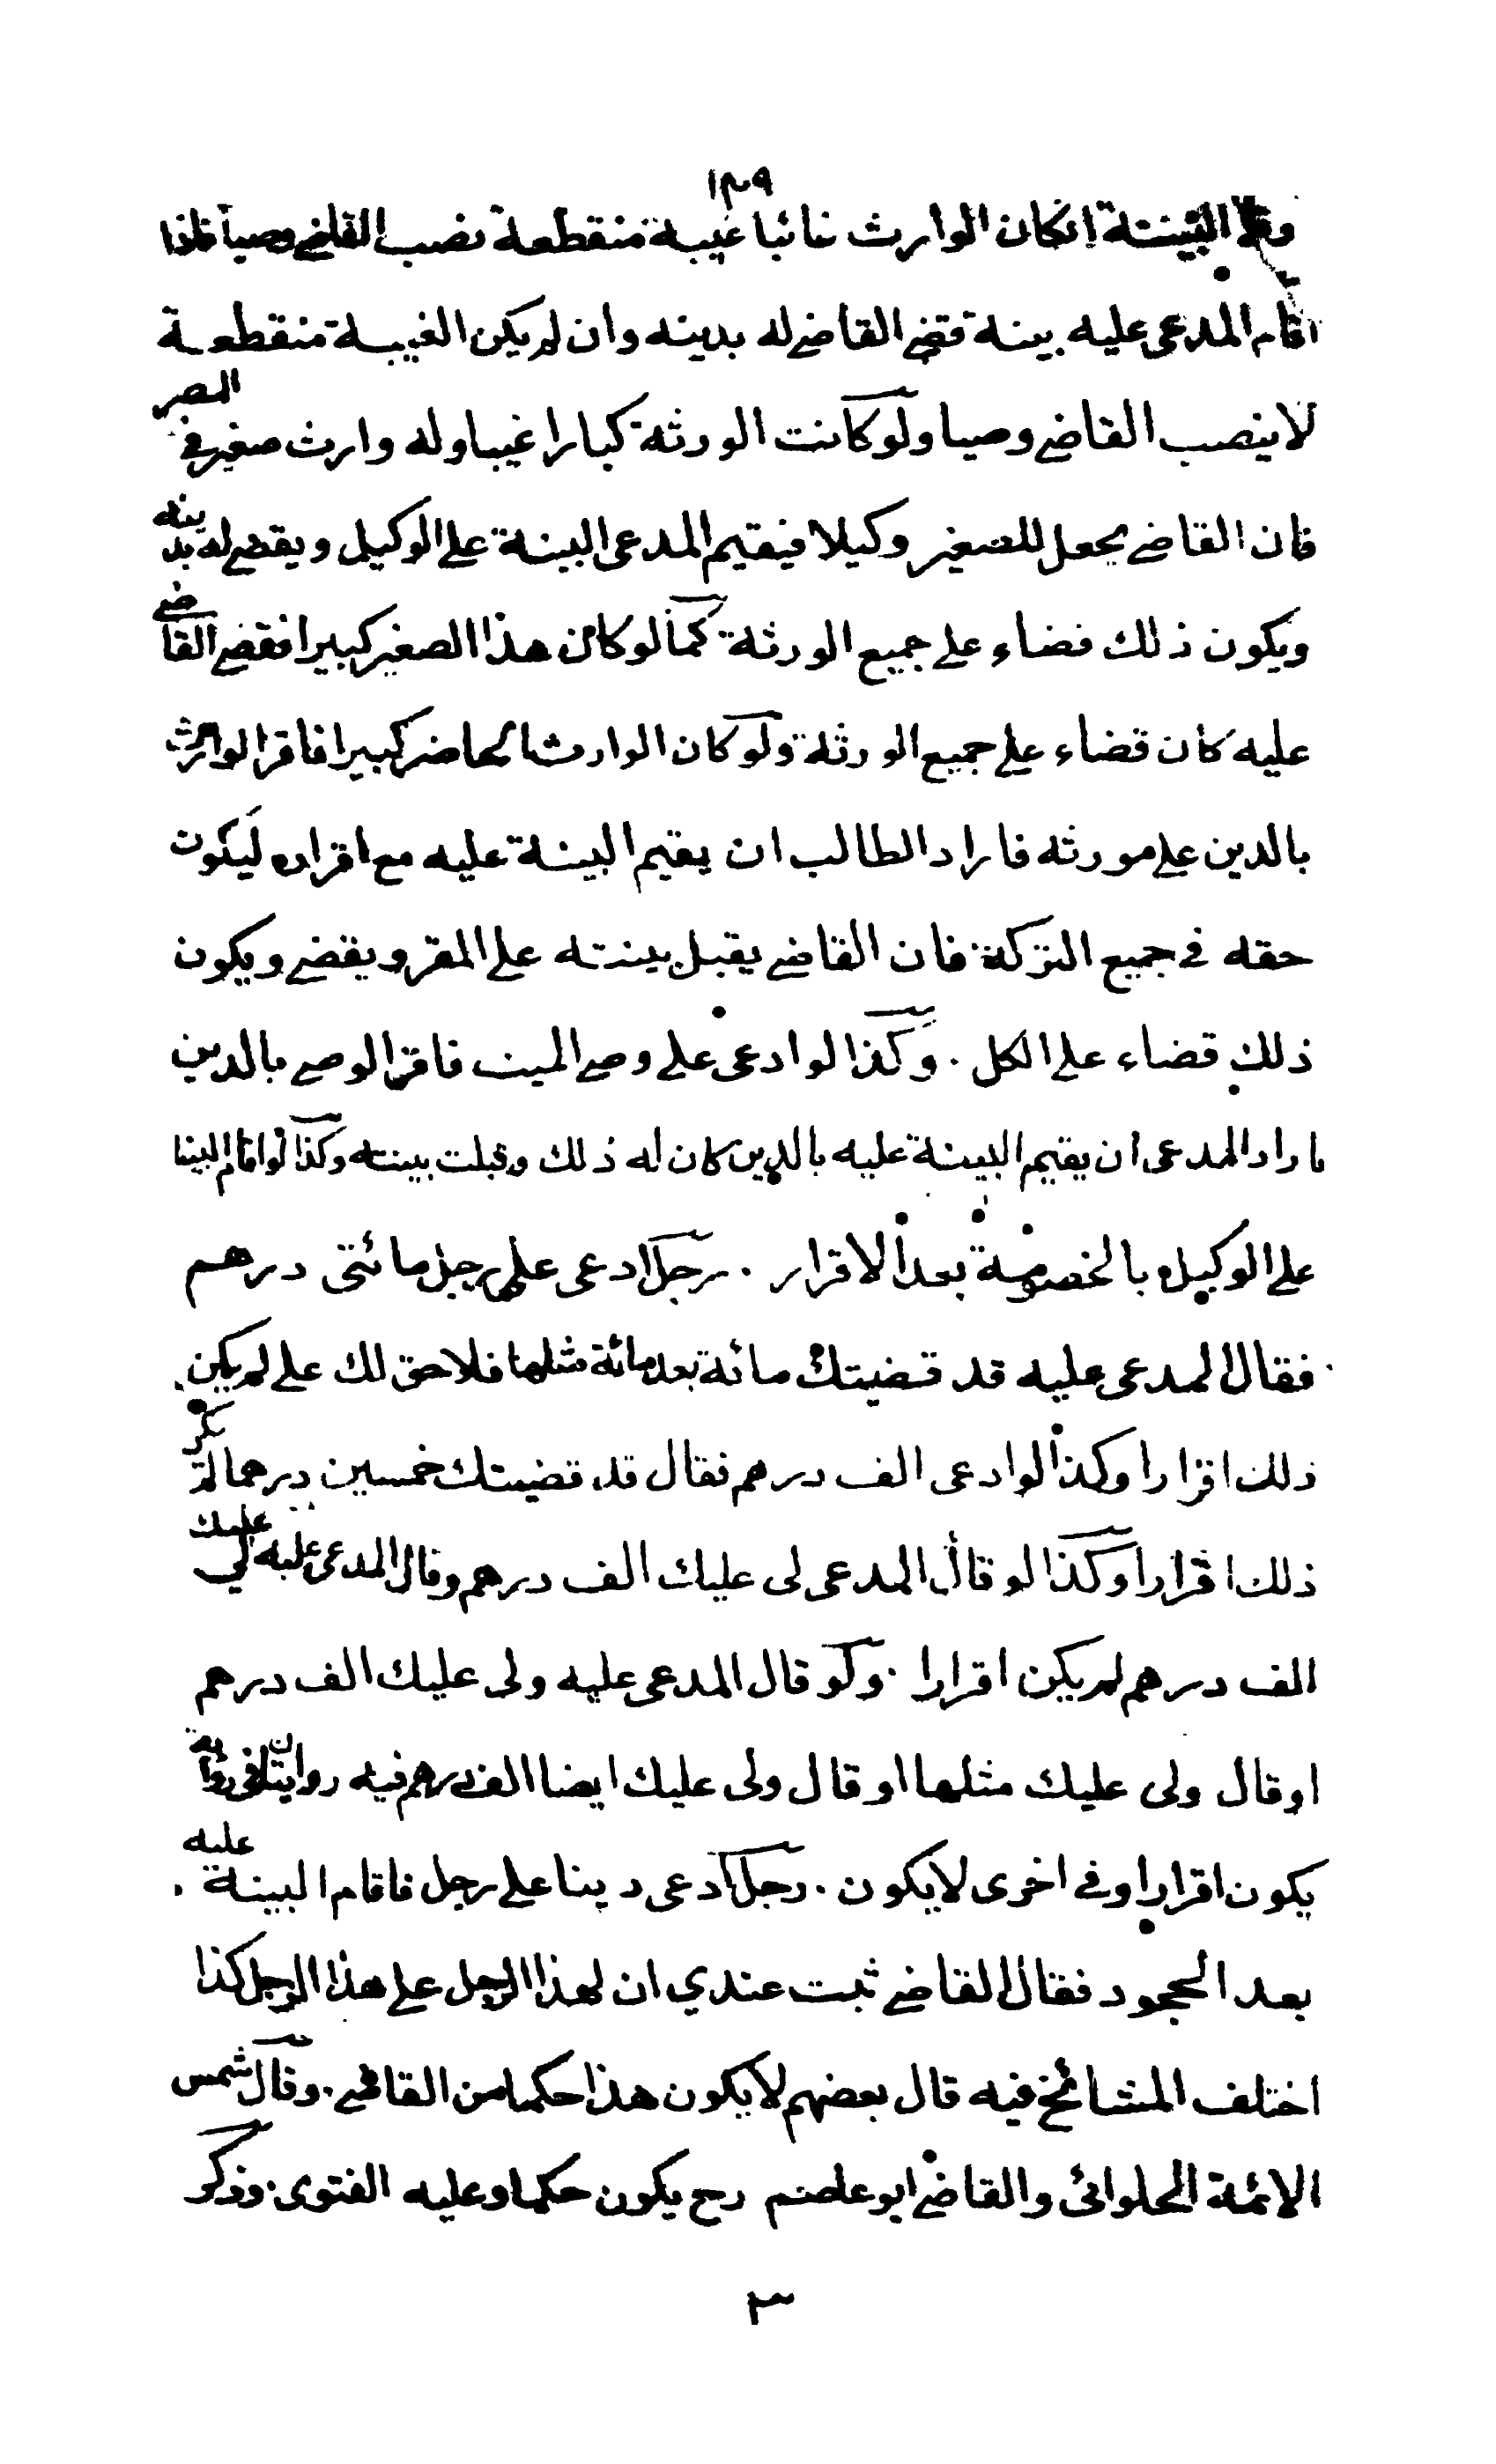 ١٣٩
البينة انكان الوارث غائبا غيبة منقطعة نصب القاضي وصيا فاذا
اقام المدعى عليه بينة قضي القاضي له بدينه وان لم يكن الغيبة منقطعة
لا ينصب القاضي وصيا ولو كانت الورثة كبارا غيبا وله وارث صغير في المصر
فان القاضي يجعل للصغير وكيلا فيقيم المدعى البينة على الوكيل ويقضي له بدينه
ويكون ذلك قضاء على جميع الورثة كما لو كان هذا الصغير كبيرا فقضى القاضي
عليه كان قضاء على جميع الورثة ولو كان الوارث الحاضر كبيرا فاقر الوارث
بالدين على مورثه فاراد الطالب ان يقيم البينة عليه مع اقراره ليكون
حقه في جميع التركة فان القاضي يقبل بينته على المقر ويقضي ويكون
ذلك قضاء على الكل . وكذا لو ادعى على وصي الميت فاقر الوصي بالدين
فاراد المدعى ان يقيم البينة عليه بالدين كان له ذلك وقبلت بينته وكذا لو اقام البينة
على الوكيل بالخصومة بعد الاقرار . رجل ادعى على رجل مائتى درهم
فقال المدعى عليه قد قضيتك مائة بعد مائة مثلها فلا حق لك على لم يكن
ذلك اقرارا وكذا لو ادعى الف درهم فقال قد قضيتك خمسين درهما لم يكن
ذلك اقرارا وكذا لو قال المدعى لى عليك الف درهم وقال المدعى عليه لي عليك
الف درهم لم يكن اقرارا . ولو قال المدعى عليه ولى عليك الف درهم
او قال ولى عليك مثلها او قال ولى عليك ايضا الف درهم فيه روايتان في رواية
يكون اقرارا وفي اخرى لا يكون . رجل ادعى دينا على رجل فاقام البينة عليه
بعد الجحود فقال القاضي ثبت عندي ان لهذا الرجل على هذا الرجل كذا
اختلف المشائخ فيه قال بعضهم لا يكون هذا حكما من القاضي . وقال شمس
الائمة الحلوائى والقاضي ابو عاصم رح يكون حكما وعليه الفتوى . وذكر
٣